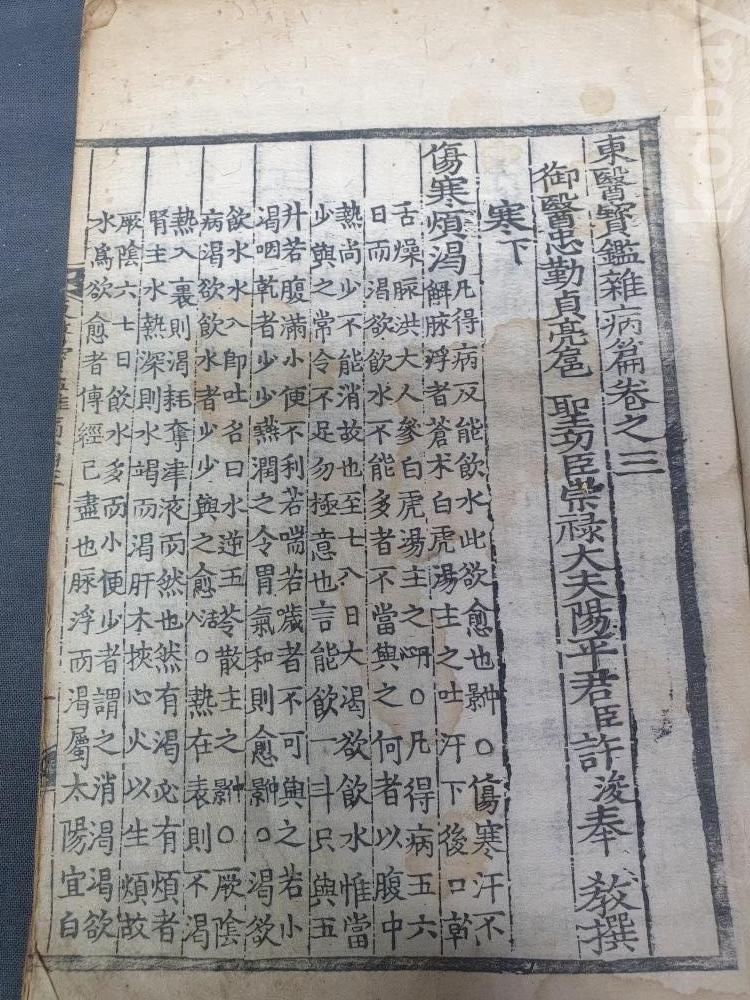 東醫寶鑑雜病篇卷之三
御醫忠勤貞亮扈 聖功臣崇祿大夫陽平君臣許浚奉 敎撰
寒下
傷寒煩渴
凡得病反能飲水此欲愈也仲景○傷寒汗不
解脉浮者蒼朮白虎湯主之吐汗下後口乾
舌燥脉洪大人參白虎湯主之仲景○凡得病五六
日而渴欲飲水不能多者不當與之何者以腹中
熱尚少不能消故也至七八日大渴欲飲水惟當
少與之常令不足勿極意也言能飲一斗只與五
升若腹滿小便不利若喘若噦者不可與之若小
渴咽乾者少少嚥潤之令胃氣和則愈仲景○渴欲
飲水水入即吐名曰水逆五苓散主之仲景○厥陰
病渴欲飲水者少少與之愈活人○熱在表則不渴
熱入裏則渴耗奪津液而然也然有渴必有煩者
腎主水熱深則水竭而渴肝木挾心火以生煩故
厥陰六七日飲水多而小便少者謂之消渴渴欲
水爲欲愈者傳經已盡也脉浮而渴屬太陽宜白
kobay